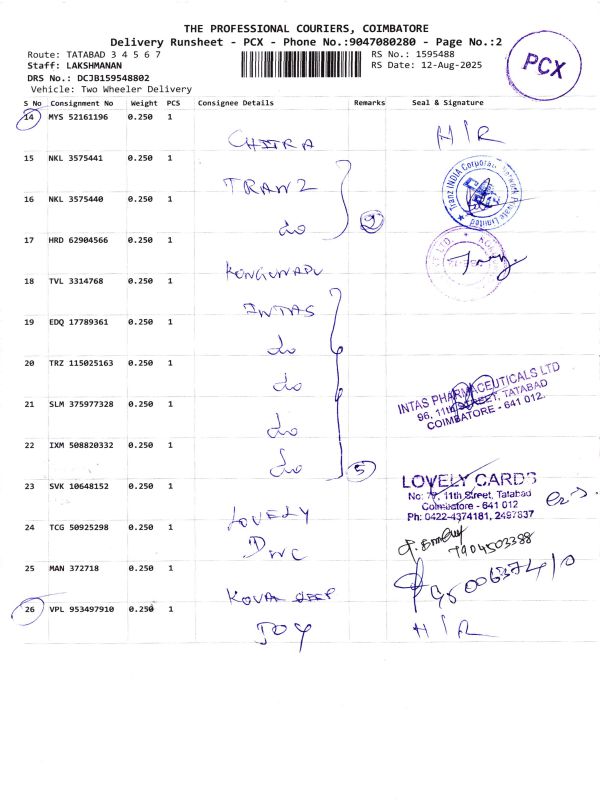 THE PROFESSIONAL COURIERS, COIMBATORE
Delivery Runsheet - PCX - Phone No.:9047080280 - Page No.:2
Route: TATABAD 3 4 5 6 7
RS No.: 1595488
Staff: LAKSHMANAN
RS Date: 12-Aug-2025
DRS No.: DCJB159548802
Vehicle: Two Wheeler Delivery
PCX
S No Consignment No Weight PCS Consignee Details Remarks Seal & Signature
14 MYS 52161196 0.250 1
CHITRA H/R
15 NKL 3575441 0.250 1
TRANZ
Tranz INDIA Corporate Network Private Limited
16 NKL 3575440 0.250 1
do 2
17 HRD 62904566 0.250 1
KONGUNADU
18 TVL 3314768 0.250 1
INTAS
19 EDQ 17789361 0.250 1
do
20 TRZ 115025163 0.250 1
do
INTAS PHARMACEUTICALS LTD
96, 11th STREET, TATABAD
COIMBATORE - 641 012.
21 SLM 375977328 0.250 1
do
22 IXM 508820332 0.250 1
do 5
23 SVK 10648152 0.250 1
LOVELY CARDS
No: 77, 11th Street, Tatabad
Coimbatore - 641 012
Ph: 0422-4374181, 2497837
LOVELY
24 TCG 50925298 0.250 1
DWC
7904503388
25 MAN 372718 0.250 1
KOVAI
26 VPL 953497910 0.250 1
JOY H/R